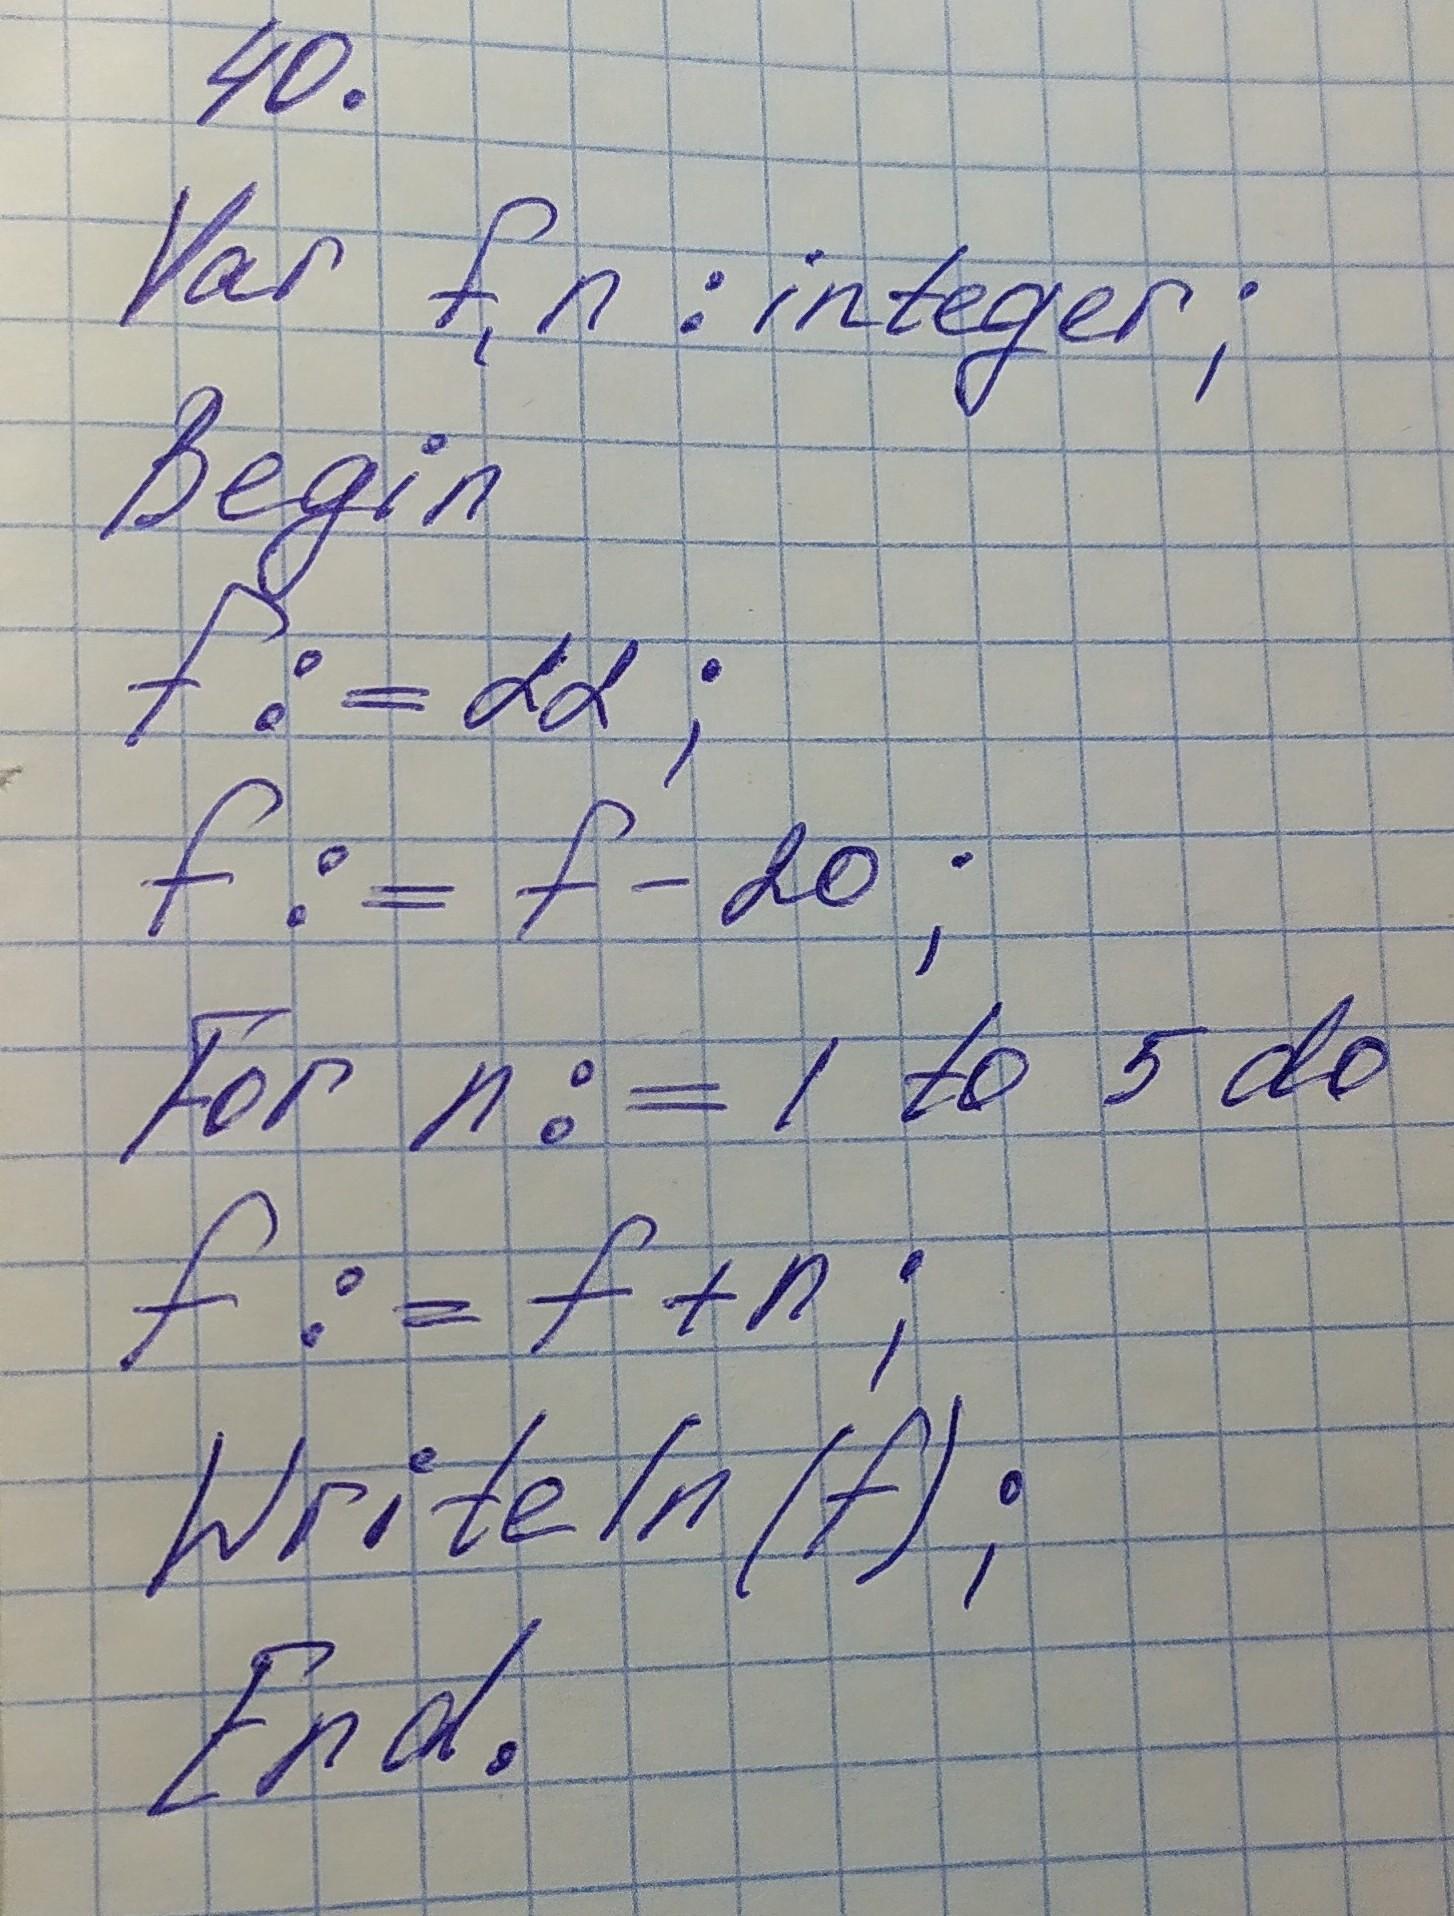 40.
Var f, n : integer;
Begin
f := 22;
f := f - 20;
For n := 1 to 5 do
f := f + n;
Writeln(f);
End.